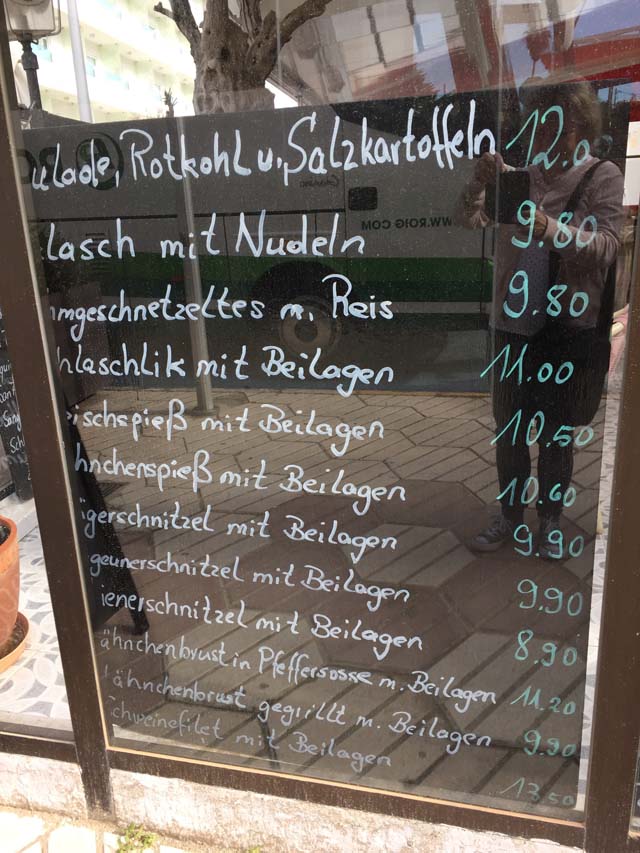 ulade, Rotkohl u, Salzkartoffeln 12.0
lasch mit Nudeln 9.80
mgeschnetzeltes m. Reis 9.80
hlaschlik mit Beilagen 11.00
ischspieß mit Beilagen 10.50
hnchenspieß mit Beilagen 10.60
igerschnitzel mit Beilagen 9.90
geunerschnitzel mit Beilagen 9.90
ienerschnitzel mit Beilagen 8.90
ähnchenbrust in Pfeffersosse m. Beilagen 11.20
ähnchenbrust gegrillt m. Beilagen 9.90
chweinefilet mit Beilagen 13.50
WWW.ROIG.COM